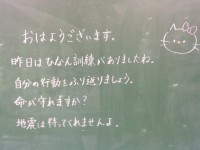 おはようございます。
昨日はひなん訓練がありましたね。
自分の行動をふり返りましょう。
命が守れますか？
地震は待ってくれませんよ。